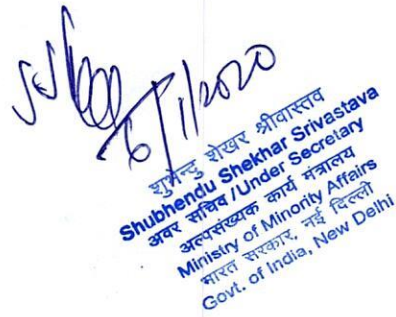 6/1/2020
शुभेन्दु शेखर श्रीवास्तव
Shubhendu Shekhar Srivastava
अवर सचिव/Under Secretary
अल्पसंख्यक कार्य मंत्रालय
Ministry of Minority Affairs
भारत सरकार, नई दिल्ली
Govt. of India, New Delhi